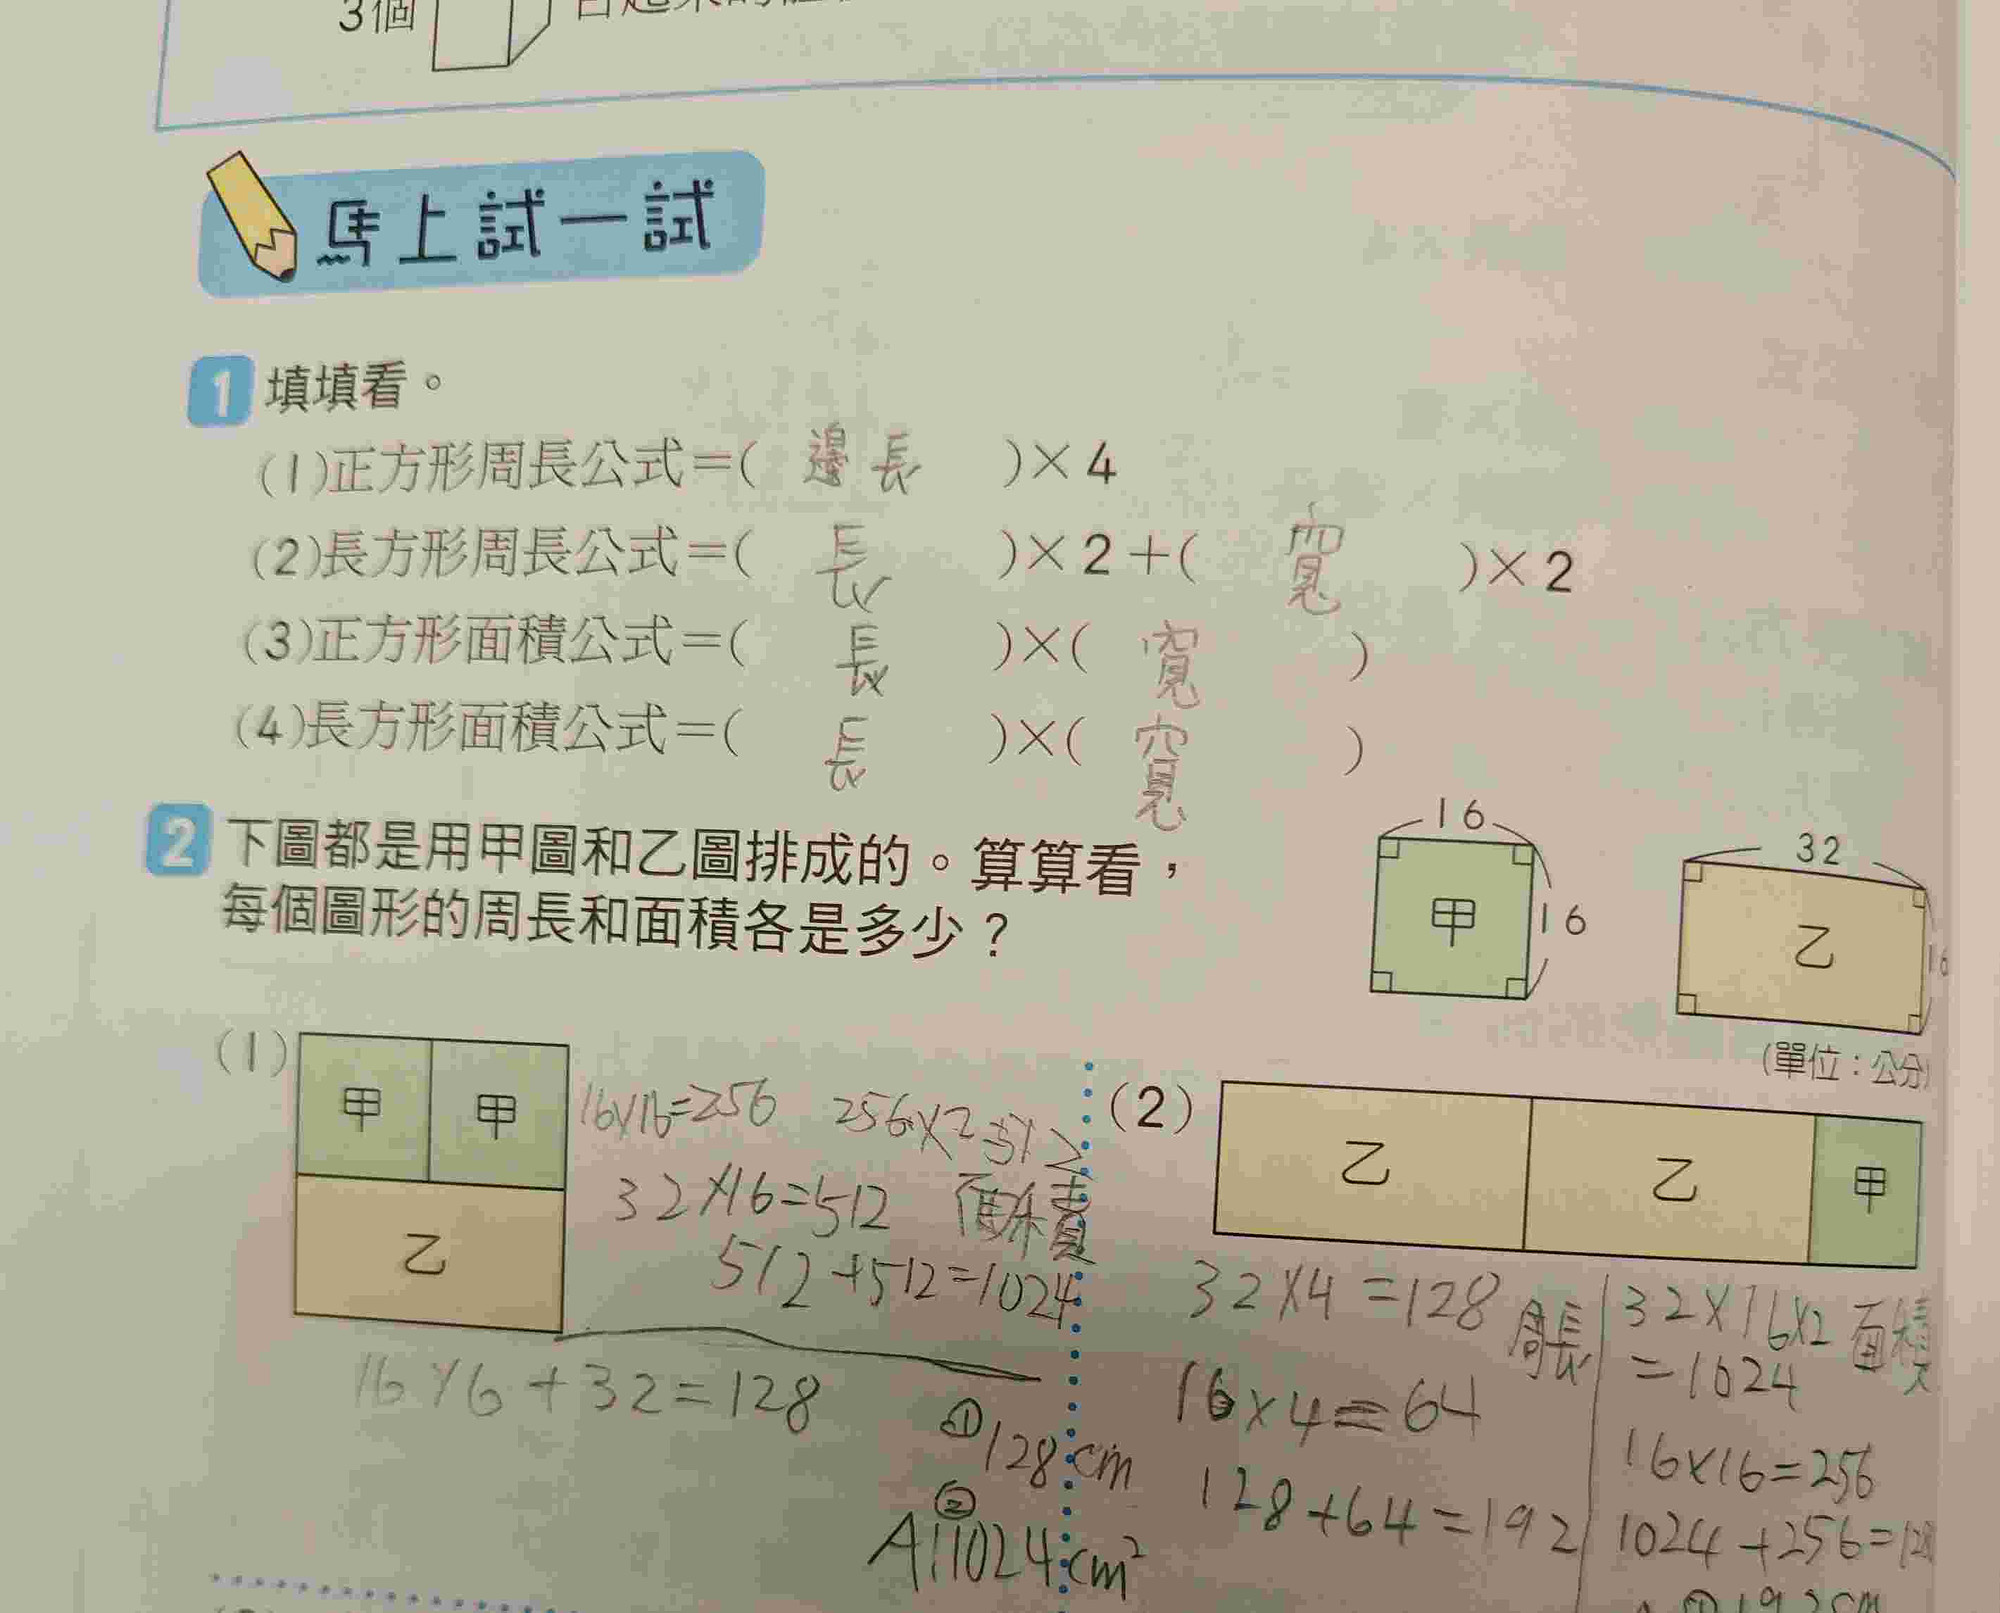 3個
馬上試一試
1 填填看。
(1)正方形周長公式=( 邊長 )×4
(2)長方形周長公式=( 長 )×2+( 寬 )×2
(3)正方形面積公式=( 長 )×( 寬 )
(4)長方形面積公式=( 長 )×( 寬 )
2 下圖都是用甲圖和乙圖排成的。算算看,
每個圖形的周長和面積各是多少?
16
甲
16
32
乙
16
(單位:公分)
(1)
甲 甲
乙
16×16=256
256×2=512
32×16=512 面積
512+512=1024
16×6+32=128
①128cm
②
A:1024cm²
(2)
乙 乙 甲
32×4=128 周長
16×4=64
128+64=192
32×16×2 面積
=1024
16×16=256
1024+256=128
①192cm